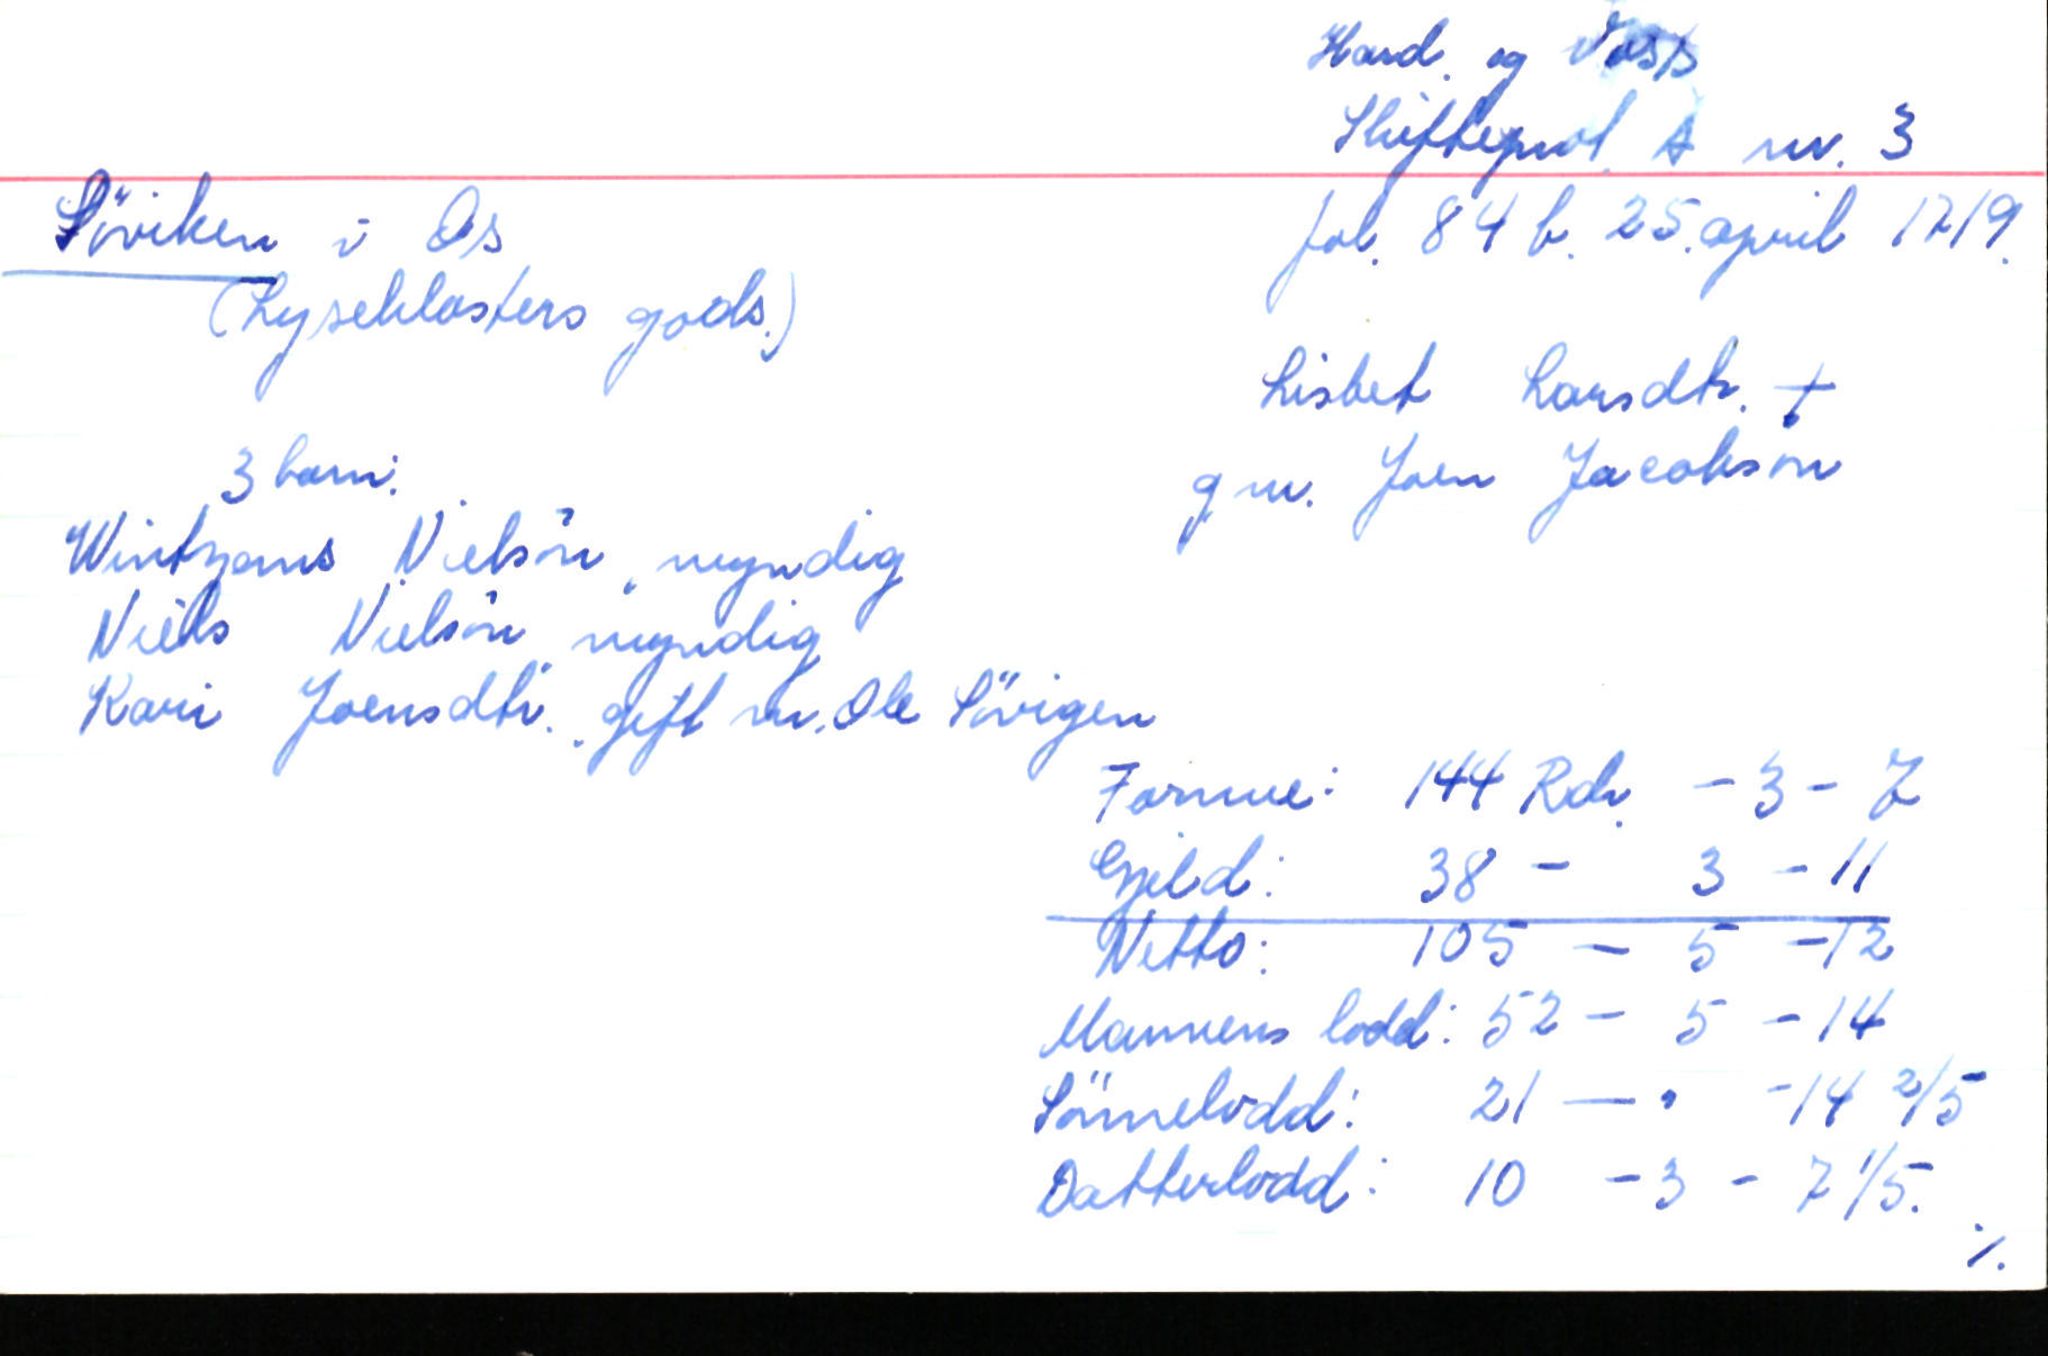 Hard. og Voss
Skifteprot. A nr. 3
Söviken i Os
fol. 84 b. 25. april 1719.
(Lyseklosters gods.)
Lisbet Larsdtr. †
g m. Joen Jacobsön
3 barn:
Nielsön, myndig
Niels Nielsön myndig
Kari Joensdtr. gift m. Ole Sövigen
Formue: 144 Rdr. - 3 - 7
Gjeld: 38 - 3 - 11
Netto: 105 - 5 - 12
Mannens lodd: 52 - 5 - 14
Sönnelodd: 21 — . - 14 2/5
Datterlodd: 10 - 3 - 7 1/5.
./.